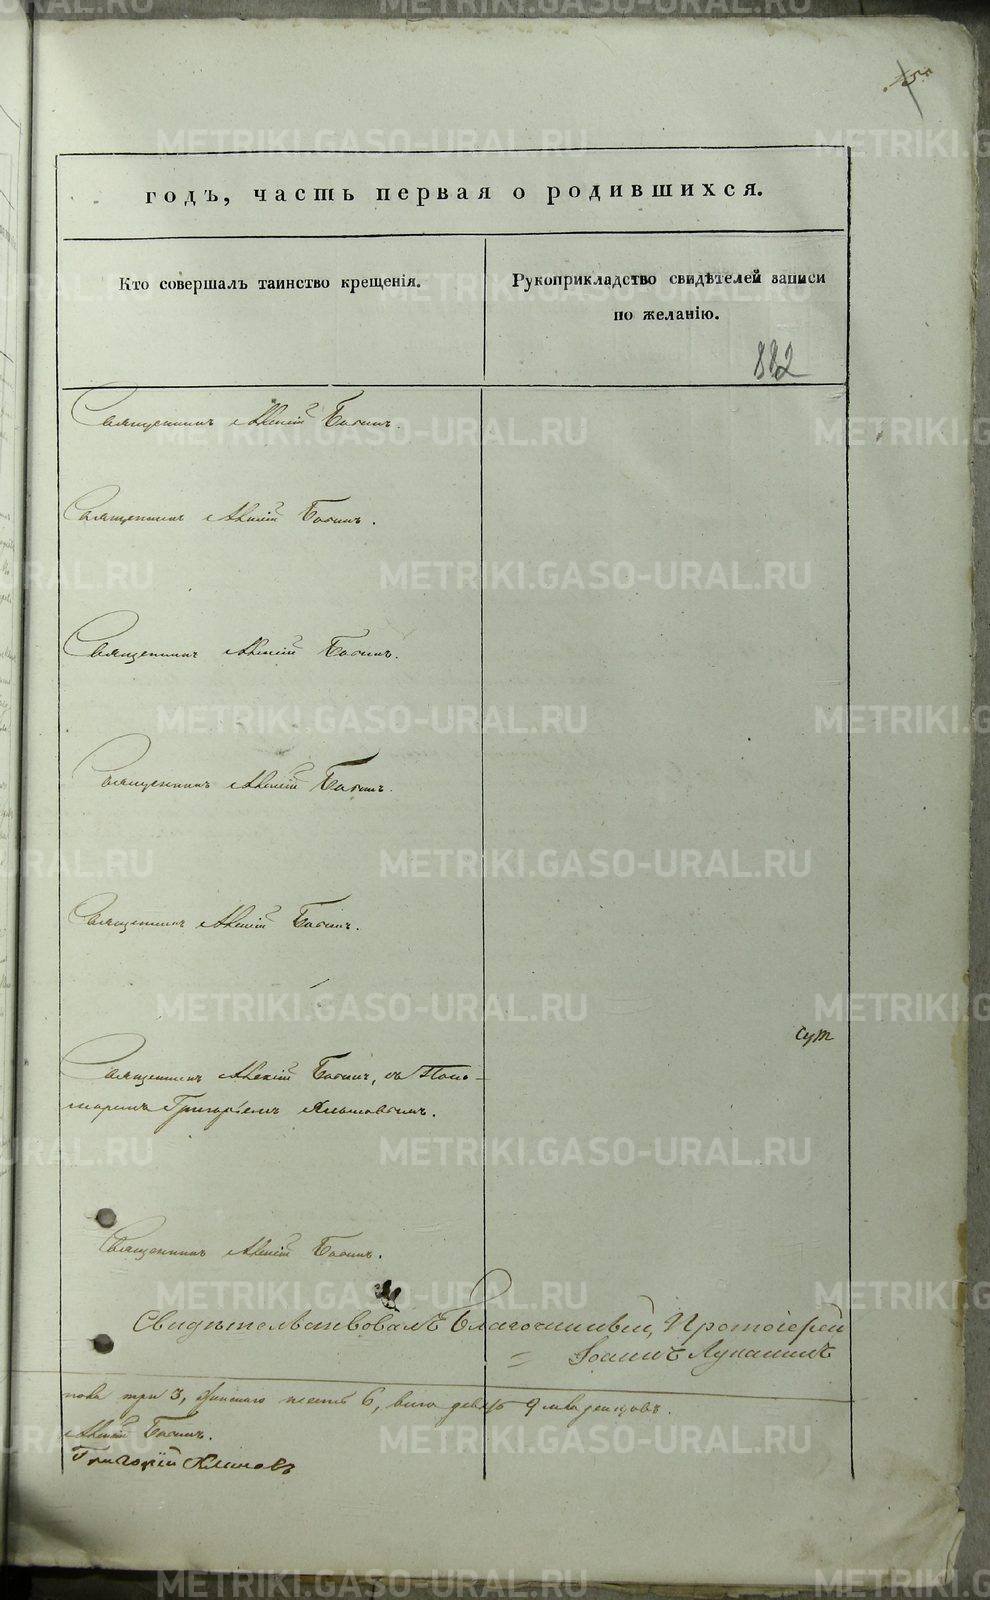 годъ, часть первая о родившихся.
Кто совершалъ таинство крещенія.
Рукоприкладство свидѣтелей записи
по желанію.
882
Священникъ Алексій Бабинъ.
Священникъ Алексій Бабинъ.
Священникъ Алексій Бабинъ.
Священникъ Алексій Бабинъ.
Священникъ Алексій Бабинъ.
Священникъ Алексій Бабинъ, съ Поно-
маремъ Григоріемъ
Священникъ Алексій Бабинъ.
Свидѣтельствовалъ Благочинный, Протоіерей
Іоаннъ Лукашинъ
пола три 3, женскаго шесть 6, всего девять 9 младенцовъ.
Алексій Бабинъ.
Григорій
METRIKI.GASO-URAL.RU